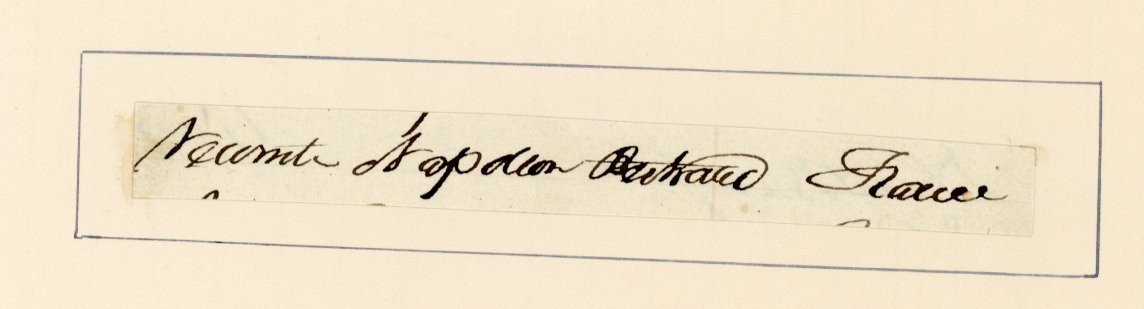 Vicomte Napoleon Bertrand France